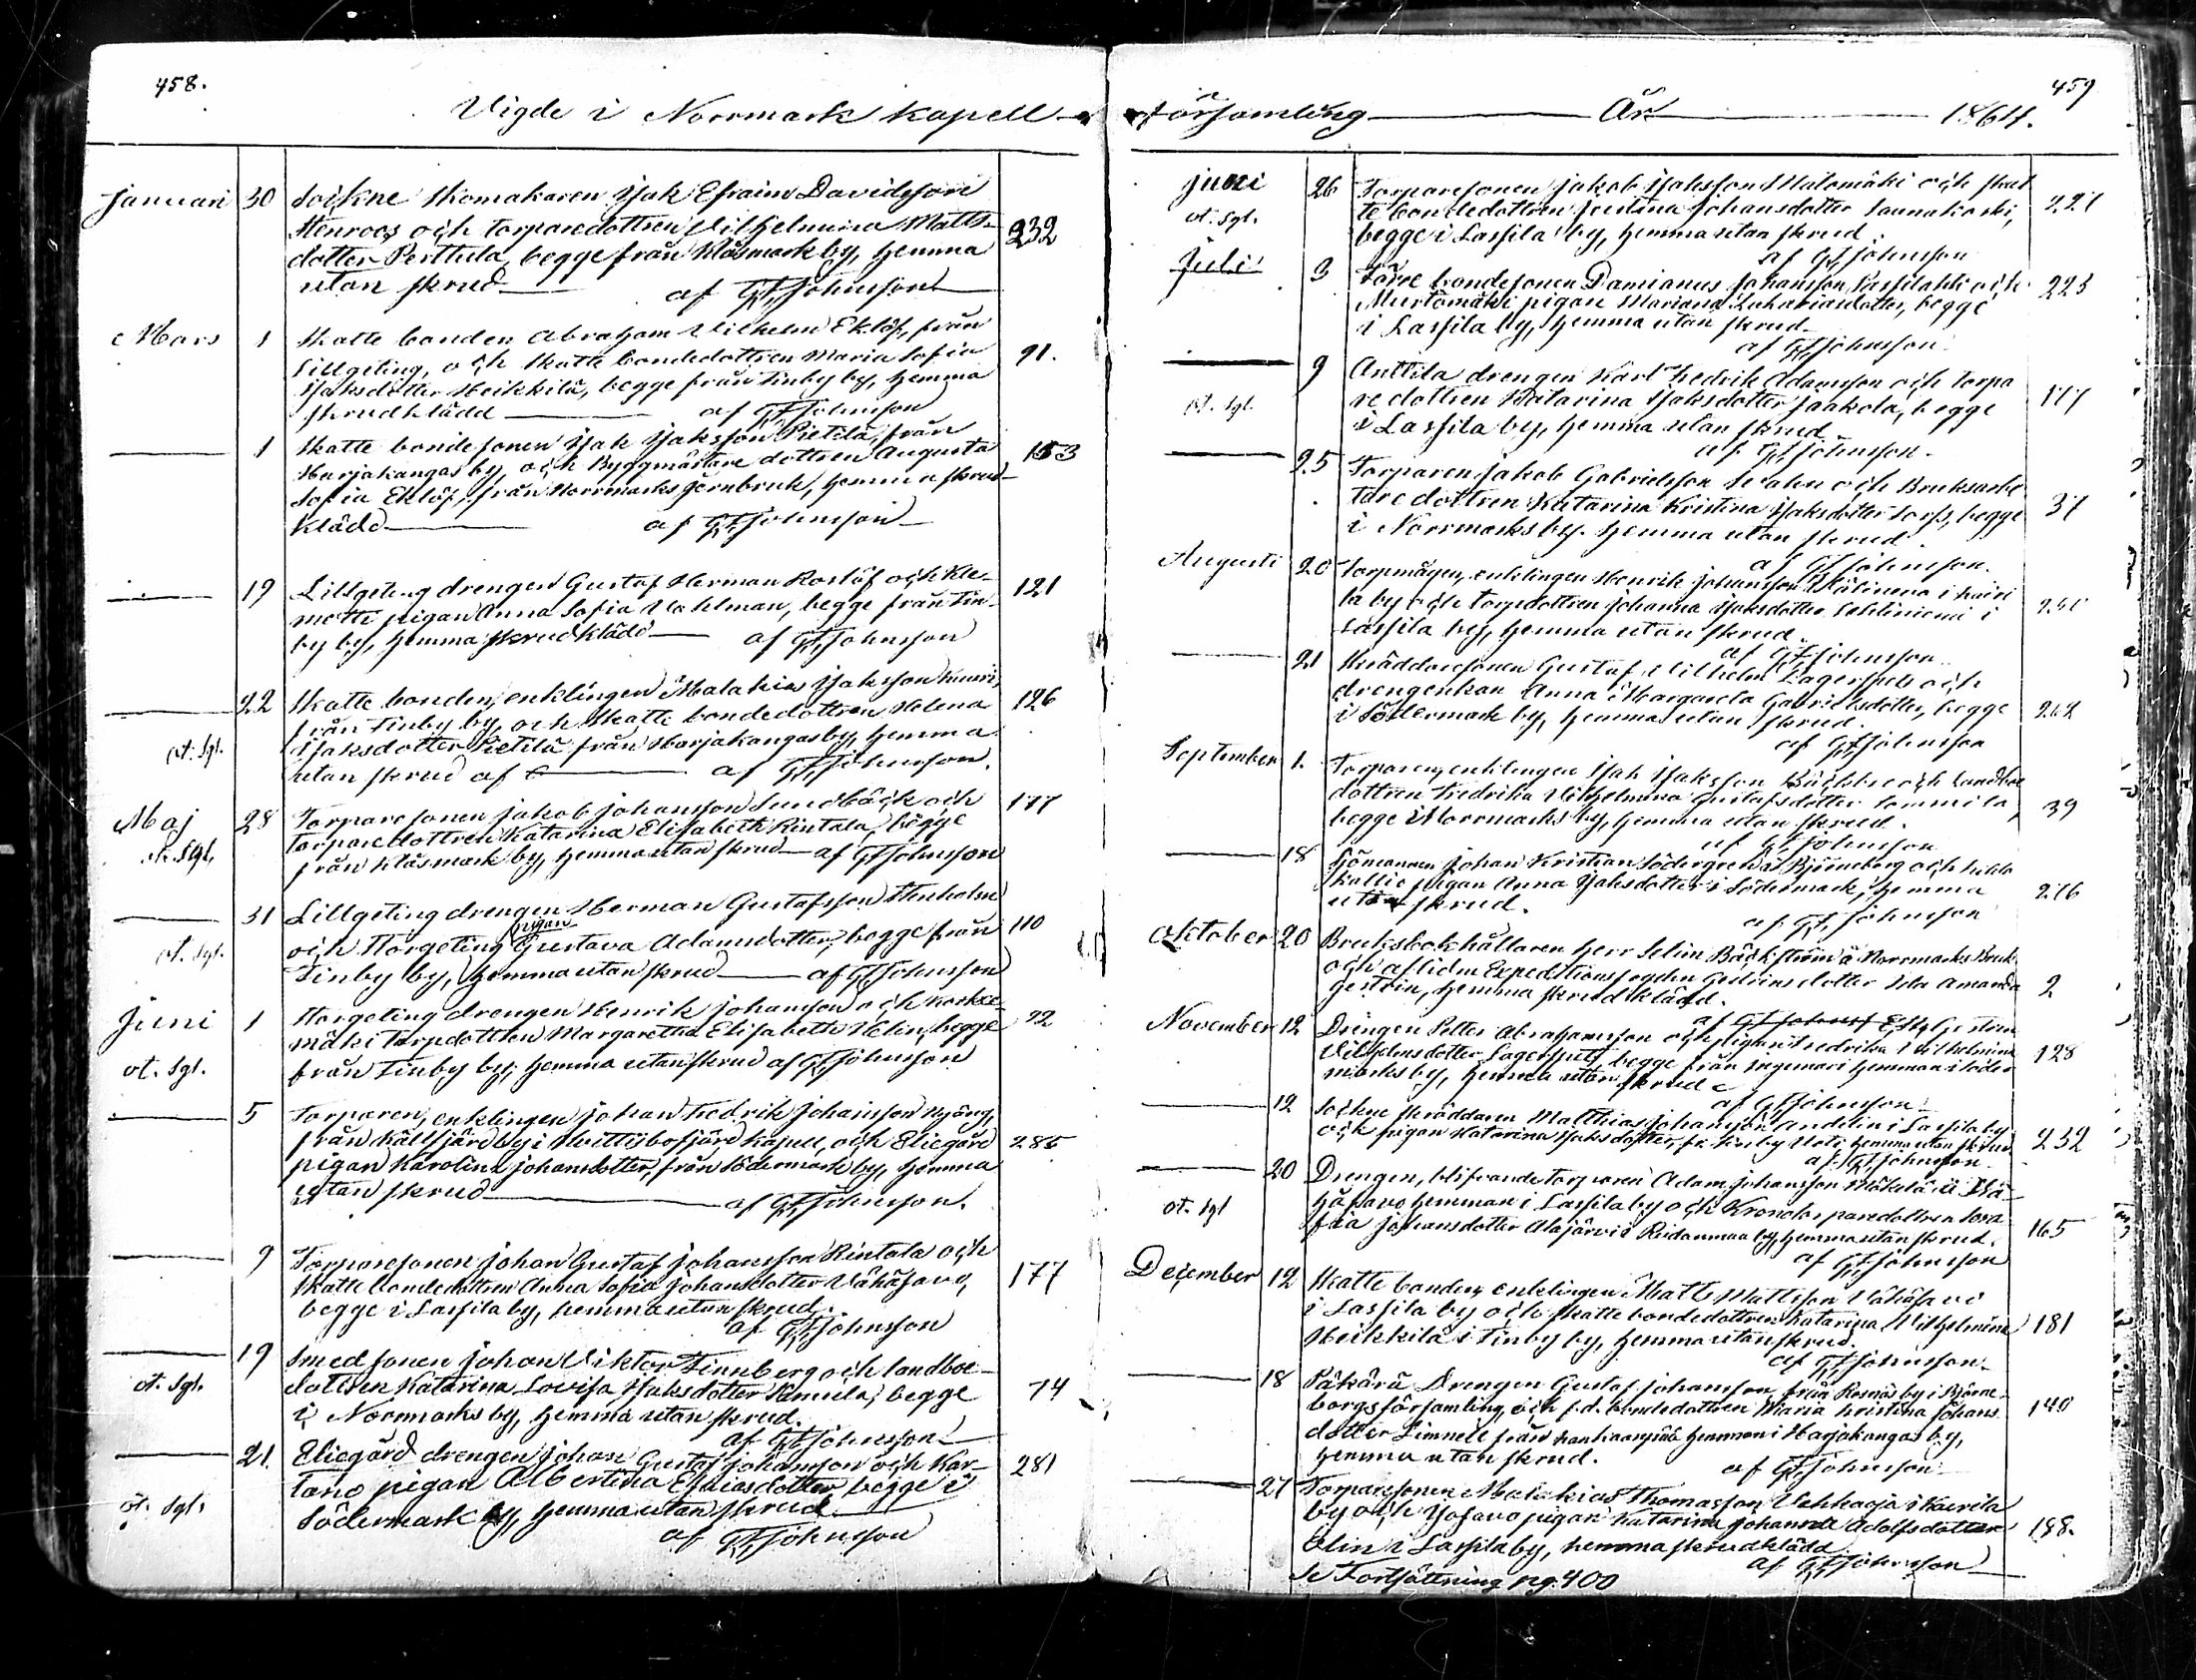 458.
Vigde i Norrmark kapell
Januari 30 Sockne skomakaren Isak Efraim Davidsson
Stenroos och torparedottren Vilhelmina Matts-
dotter Perttula, begge från Klåsmark by, hemma 232
utan skrud af G F Johnsson
Mars 1 Skatte bonden Abraham Vilhelm Eklöf, från
Lillgeting, och skatte bondedottren Maria Sofia 91.
Isaksdotter Heikkilä, begge från Finby by, hemma
skrudklädd af G F Johnsson
1 Skatte bondesonen Isak Isaksson Pietilä, från
Harjakangas by, och Byggmästare dottren Augusta 153
Sofia Eklöf, från Norrmarks jernbruk, hemma skrud-
klädd af G F Johnsson
19 Lillgeting drengen Gustaf Herman Roslöf och Kle- 121
metti pigan Anna Sofia Vahlman, begge från Fin-
by by, hemma skrudklädd af G F Johnsson
22 Skatte bonden, enklingen Malakias Isaksson
från Finby by, och skatte bondedottren Helena 126
ot. Sgl. Isaksdotter Pietilä från Harjakangas by, hemma
utan skrud af af G F Johnsson.
Maj 28 Torparesonen Jakob Johansson Sundbäck och 177
ot. Sgl. torparedottren Katarina Elisabeth Rintala, begge
från Klåsmark by, hemma utan skrud af G F Johnsson
31 Lillgeting drengen Herman Gustafsson Stenholm
pigan
ot. Sgl. och Storgeting Gustava Adamsdotter, begge från 110
Finby by, hemma utan skrud af G F Johnsson
Juni 1 Storgeting drengen Henrik Johansson och 22
mäki torpdottren Margaretha Elisabeth Helin, begge
ot. Sgl. från Finby by, hemma utan skrud af G F Johnsson
5 Torparen, enklingen Johan Fredrik Johansson
från Källfjärd by i kapell, och Eliegård 285
pigan Karolina Johansdotter, från Södermark by, hemma
utan skrud af G F Johnsson.
9 Torparesonen Johan Gustaf Johansson Rintala och
skatte bondedottren Anna Sofia Johansdotter Vähäjavo, 177
begge i Lassila by, hemma utan skrud.
af G F Johnsson
19 Smedsonen Johan Viktor Finnberg och landboe-
ot. Sgl. dottren Katarina Lovisa Isaksdotter begge 74
i Norrmarks by, hemma utan skrud.
af G F Johnsson
21. Eliegård drengen Johan Gustaf Johansson och Kar- 281
tano pigan Albertina Esaiasdotter begge i
ot. Sgl. Södermark by, hemma utan skrud
af G F Johnsson
459
församling År 1864.
Juni 26 Torparesonen Jakob Isaksson Matomäki och skat 221
ot. Sgl. te bondedottren Justina Johansdotter Saunakoski,
begge i Lassila by, hemma utan skrud.
af G F Johnsson
Juli 3 Torre bondesonen Damianus Johansson och 223
Murtomäki pigan Mariana begge
i Lassila by, hemma utan skrud.
af G F Johnsson.
9 Anttila drengen Karl Fredrik Adamsson och torpa
ot. Sgl. re dottren Katarina Isaksdotter Jaakola, begge 177
i Lassila by, hemma utan skrud.
af G F Johnsson.
25 Torparen Jakob Gabrielsson och Bruksarbe
tare dottren Katarina Kristina Isaksdotter begge 37
i Norrmarks by. hemma utan skrud.
af G F Johnsson.
Augusti 20 Torpmågen, enklingen Henrik Johansson i
la by och torpdottren Johanna Isaksdotter i
Lassila by, hemma utan skrud.
af G F Johnsson.
21 Skräddaresonen Gustaf Vilhelm och
drengenkan Anna Margareta Gabrielsdotter, begge
i Södermark by, hemma utan skrud. 262
af G F Johnsson
September 1. Torparen, enklingen Isak Isaksson och Landboe
dottren Fredrika Vilhelmina Gustafsdotter Sommila, 39
begge i Norrmarks by, hemma utan skrud.
af G F Johnsson
18 Sjömannen Johan Kristian Södergren i Björneborg och
pigan Anna Isaksdotter i Södermark, hemma 276
utan skrud.
af G F Johnsson
Oktober 20 Bruksbokhållaren herr Selim Bäckström å Norrmarks Bruk
och aflidne Expeditionsfogden dotter Ida Amanda 2
hemma skrudklädd.
af
November 12 Drengen Petter Abrahamsson och pigan Fredrika Vilhelmina
Vilhelmsdotter begge från Ingemari hemman i Söder 128
marks by, hemma utan skrud
af G F Johnsson
12 Sockne skräddaren Matthias Johansson Andelin i Lassila by
och pigan Katarina Isaksdotter, hemma utan skrud 232
af G F Johnsson.
20 Drengen, blifvande torparen Adam Johansson Mäkelä å Vä-
ot. Sgl häjavo hemman i Lassila by och Kronotorparedottren
fia Johansdotter Alajärvi i by, hemma utan skrud. 165
af G F Johnsson
December 12 Skatte bonden enklingen Matts Mattsson Vähäjavo
i Lassila by och skatte bondedottren Katarina Vilhelmina 181
Heikkilä i Finby by, hemma utan skrud
af G F Johnsson
18 Päkärä Drengen Gustaf Johansson från Rosnäs by i Björne-
borgs församling, och f.d. bondedottren Maria Kristina Johans 140
dotter Limnell från hemman i Harjakangas by,
hemma utan skrud. af G F Johnsson
27 Torparesonen Malakias Thomasson i Kairila
by och Isojavo pigan Katarina Johanna Adolfsdotter 188.
Olin i Lassila by, hemma skrudklädd
af G F Johnsson
Se Fortsättning pg. 400